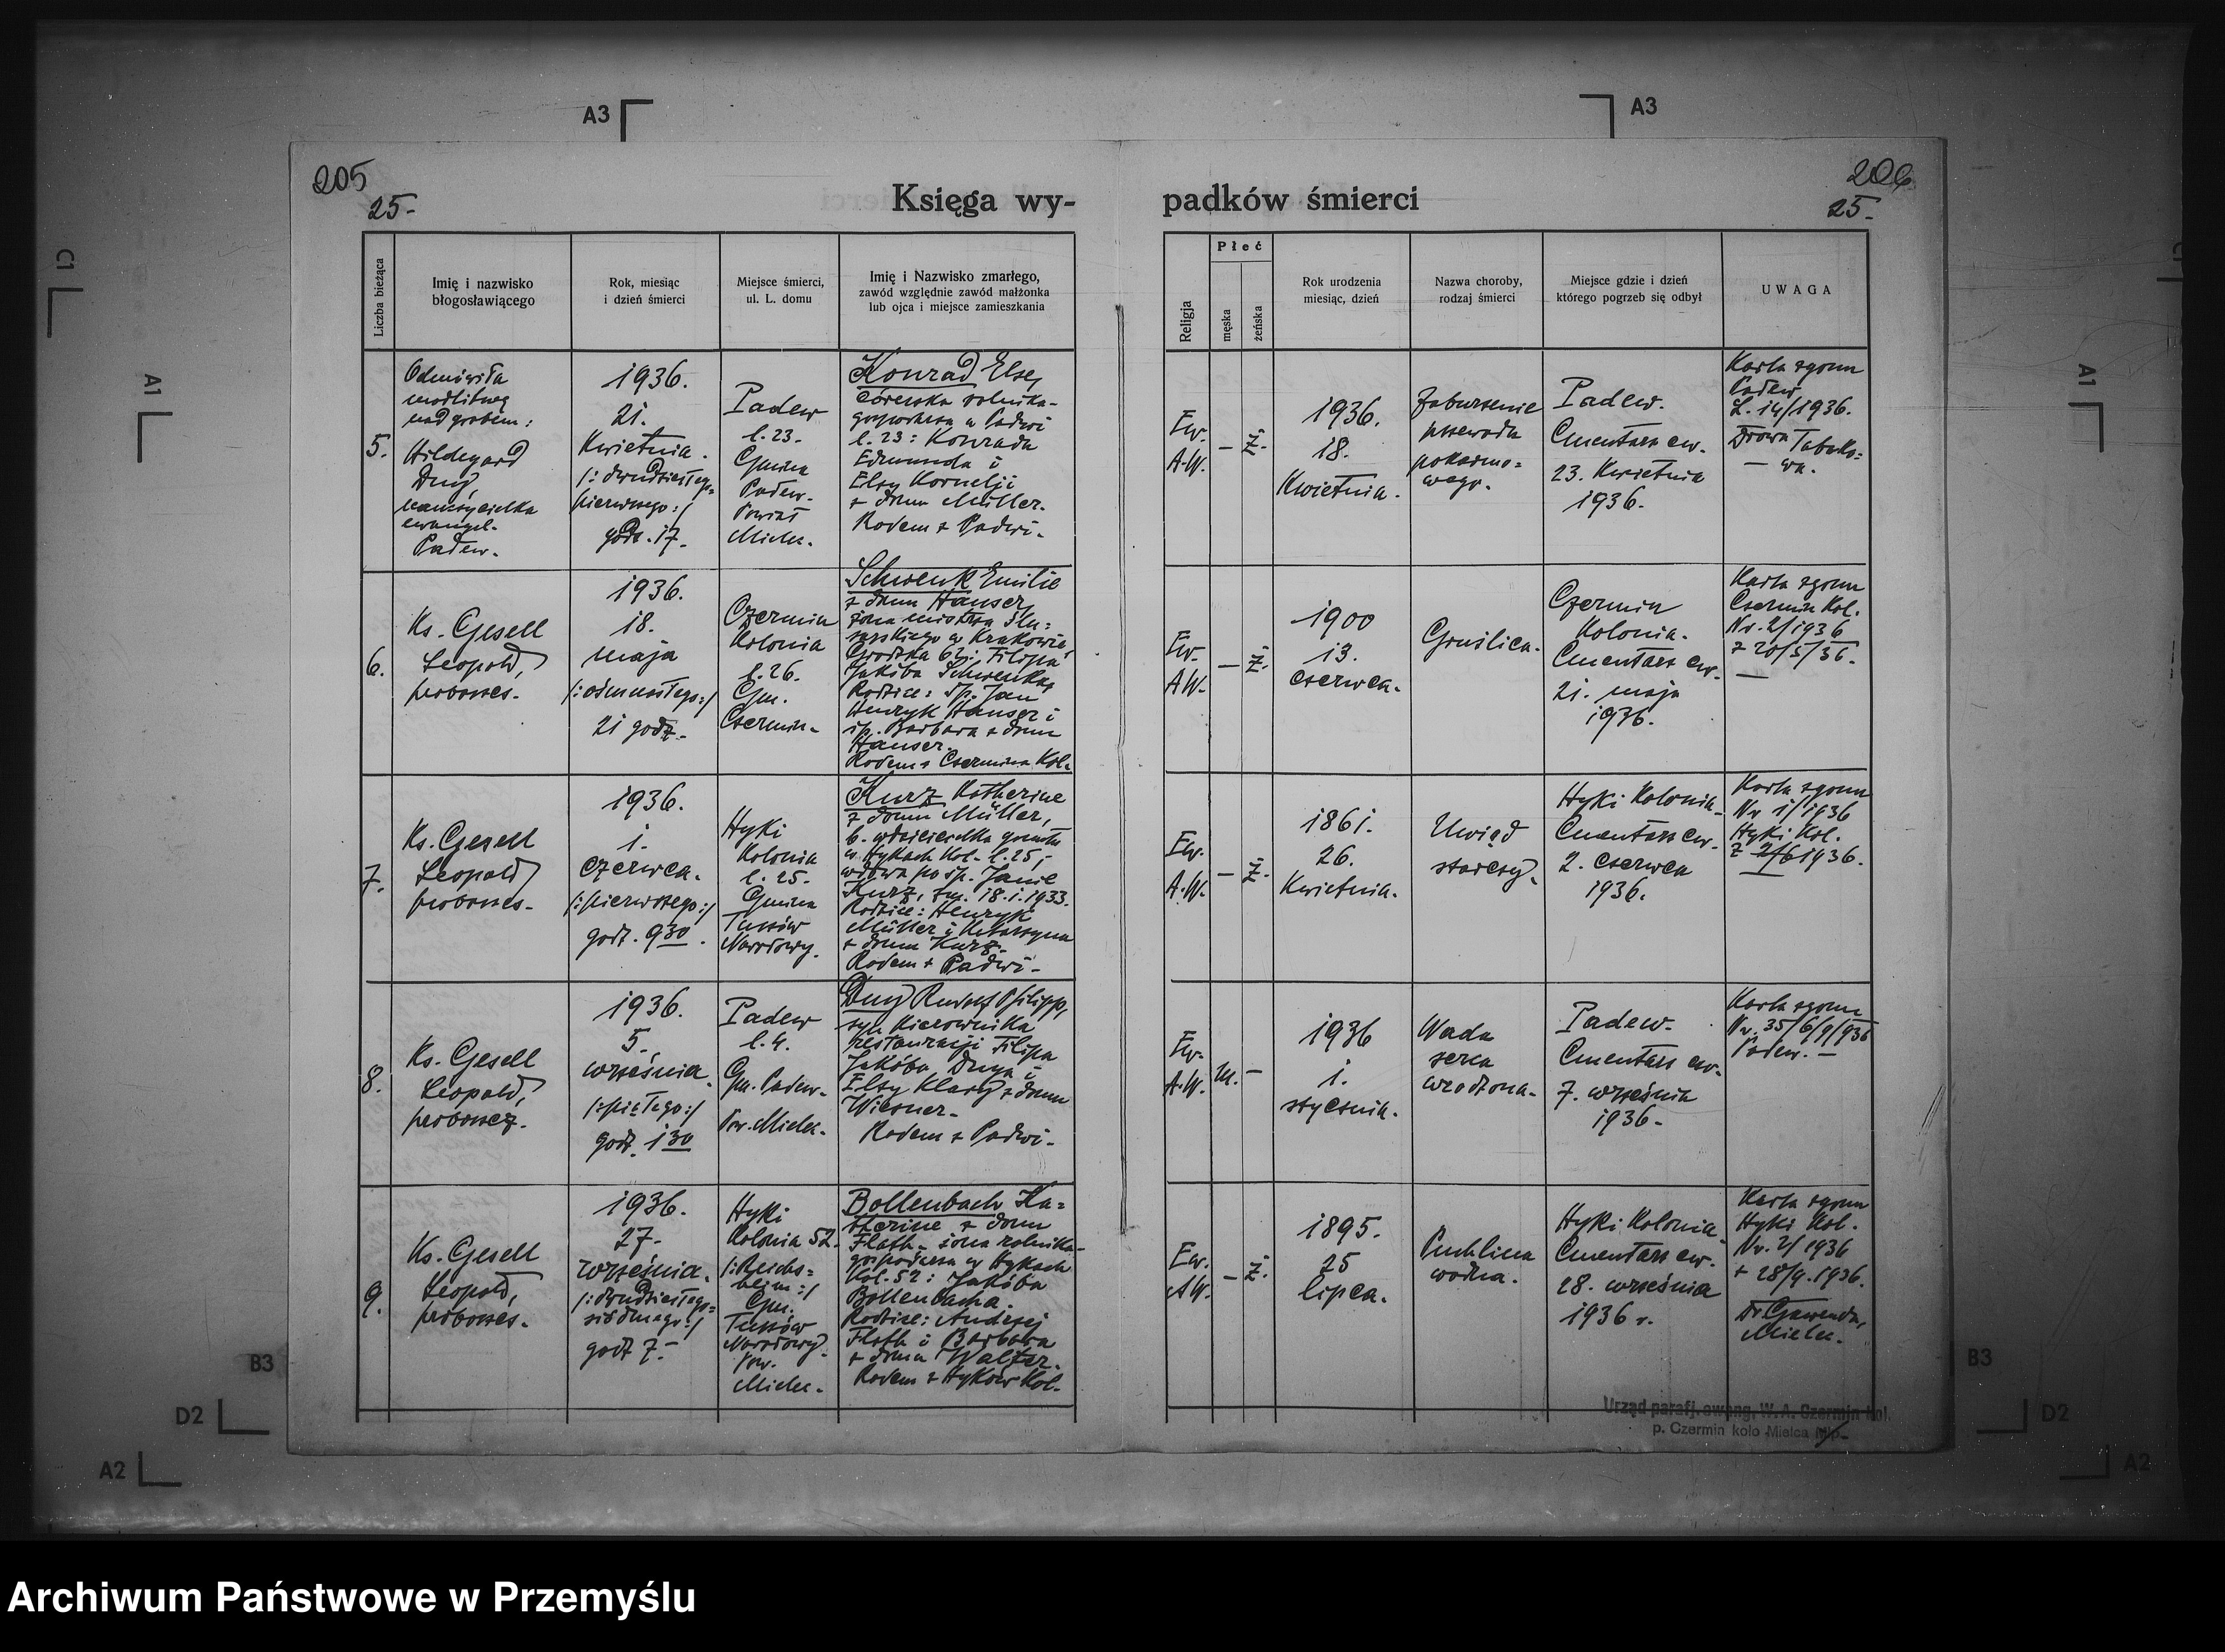 A3
A3
205
25.-
Księga wy-
padków śmierci
206
25.-
Liczba bieżąca
Imię i nazwisko
błogosławiącego
Rok, miesiąc
i dzień śmierci
Miejsce śmierci,
ul. L. domu
Imię i Nazwisko zmarłego,
zawód względnie zawód małżonka
lub ojca i miejsce zamieszkania
Religja
Płeć
męska
żeńska
Rok urodzenia
miesiąc, dzień
Nazwa choroby,
rodzaj śmierci
Miejsce gdzie i dzień
którego pogrzeb się odbył
UWAGA
5.
Odmówiła
modlitwę
nad grobem:
Hildegard
Duy
nauczycielka
ewangel.
Padew.
1936.
21.
Kwietnia.
/: dwudziestego=
pierwszego :/
godz. 17.
Padew
l. 23.
Gmina
Padew.
Powiat
Mielec.
Konrad Else,
córeczka rolnika-
gospodarza w Padwi
l. 23: Konrada
Edmunda i
Elsy Kornelji
z domu Müller.
Rodem z Padwi.
Ew.
A.W.
-
Ż.
1936.
18.
Kwietnia.
Zaburzenie
przewodu
pokarmo=
wego.
Padew.
Cmentarz ew.
23. Kwietnia
1936.
Karta zgonu
Padew
L. 14/1936.
Drowa Tabako=
wa.
6.
Ks. Gesell
Leopold,
proboszcz.
1936.
18.
maja
/: osiemnastego :/
21 godz.
Czermin
Kolonia
l. 26.
Gm.
Czermin.
Schwenk Emilie
z domu Hauser,
żona mistrza ślu=
sarskiego w Krakowie,
Grodzka 62: Filipa
Jakóba Schwenka,
Rodzice: śp. Jan
Henryk Hauser i
śp. Barbara z domu
Hauser.
Rodem z Czermina Kol.
Ew.
A.W.
-
Ż.
1900
13.
czerwca.
Gruźlica.
Czermin
Kolonia.
Cmentarz ew.
21. maja
1936.
Karta zgonu
Czermin Kol.
Nr. 2/1936
z 20/5/36.
7.
Ks. Gesell
Leopold
proboszcz.
1936.
1.
czerwca.
/: pierwszego :/
godz. 9 30.
Hyki
Kolonia
l. 25.
Gmina
Tuszów
Narodowy.
Kurz Katherine
z domu Müller,
b. właścicielka gruntu
w Hykach Kol. l. 25,
wdowa po śp. Janie
Kurz, zm. 18.1.1933.
Rodzice: Henryk
Müller i Katarzyna
z domu Kurz.
Rodem z Padwi.
Ew.
A.W.
-
Ż.
1861.
26.
Kwietnia.
Uwiąd
starczy.
Hyki Kolonia.
Cmentarz ew.
2. czerwca
1936.
Karta zgonu
Nr 1/1936
Hyki Kol.
z 2/6 1936.
8.
Ks. Gesell
Leopold,
proboszcz.
1936.
5.
września.
/: piątego :/
godz. 1 30
Padew
l. 4.
Gm. Padew.
Pow. Mielec.
Duy Rudolf Philipp,
syn Kierownika
restauracji Filipa
Jakóba Duya i
Elsy Klary z domu
Wiesner.
Rodem z Padwi.
Ew.
A.W.
m.
-
1936
1.
stycznia.
Wada
serca
wrodzona.
Padew.
Cmentarz ew.
7. września
1936.
Karta zgonu
Nr. 35/6/9/936
Padew.
9.
Ks. Gesell
Leopold,
proboszcz.
1936.
27.
września.
/: dwudziestego=
siódmego :/
godz 7.
Hyki
Kolonia 52.
/: Reichs=
heim :/
Gm.
Tuszów
Narodowy.
Pow.
Mielec.
Bollenbach Ka=
therine z domu
Flath, żona rolnika-
gospodarza w Hykach
Kol. 52: Jakóba
Bollenbacha.
Rodzice: Andrzej
Flath i Barbara
z domu Walter.
Rodem z Hyków Kol.
Ew.
AW.
-
Ż.
1895.
25
lipca.
Puchlina
wodna.
Hyki Kolonia.
Cmentarz ew.
28. września
1936 r.
Karta zgonu
Hyki Kol.
Nr. 2/1936
z 28/9.1936.
Dr. Gawenda,
Mielec.
Urząd parafj. ewang. W. A. Czermin Kol.
p. Czermin koło Mielca Młp.
C1
A1
A1
B3
B3
D2
D2
A2
A2
Archiwum Państwowe w Przemyślu